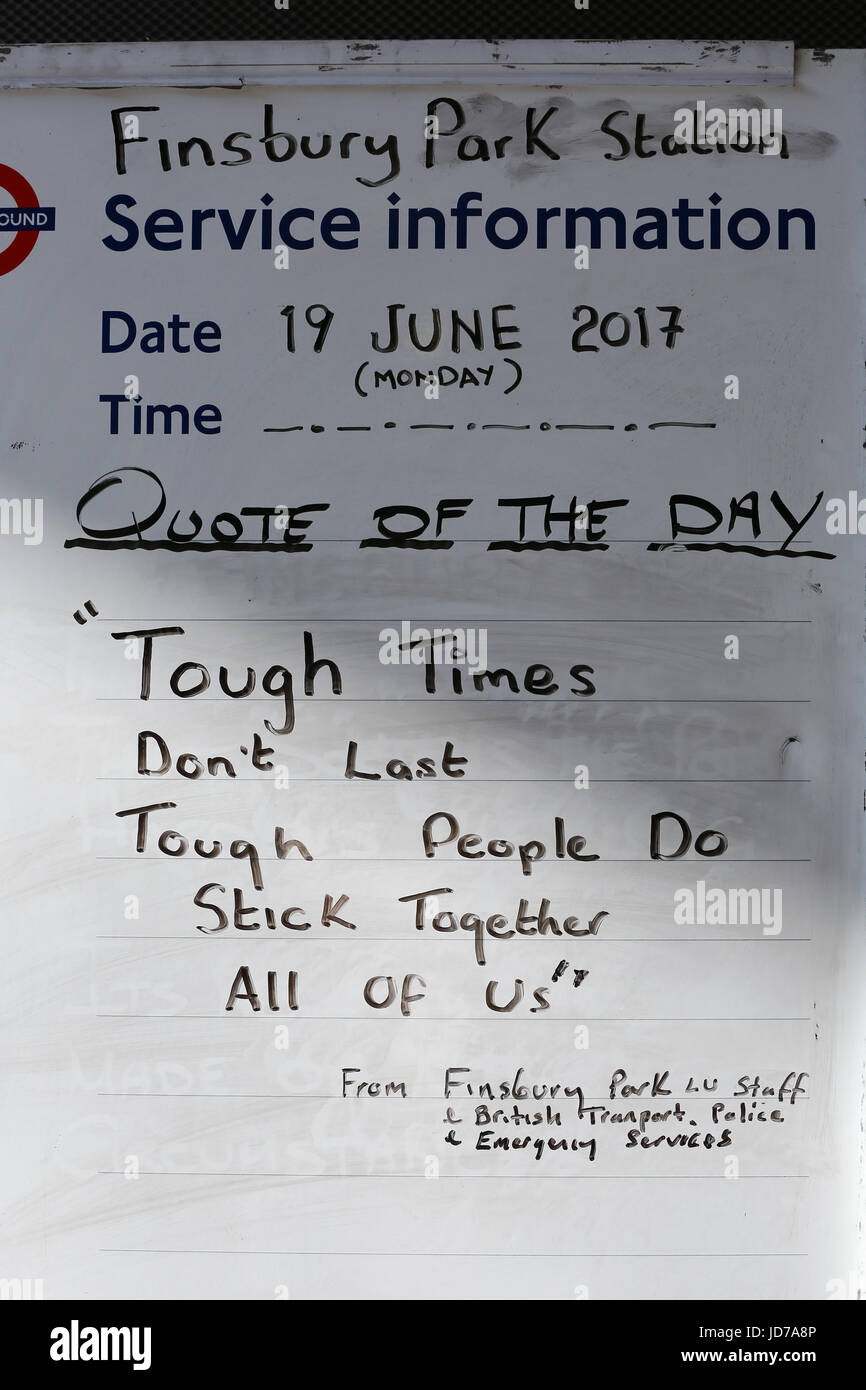 Finsbury Park Station
OUND
Service information
Date 19 JUNE 2017
(MONDAY)
Time
QUOTE OF THE DAY
"Tough Times
Don't Last
Tough People Do
Stick Together
All OF Us"
From Finsbury Park LU Staff
& British Tranport. Police
& Emergency Services
alamy
Image ID: JD7A8P
www.alamy.com